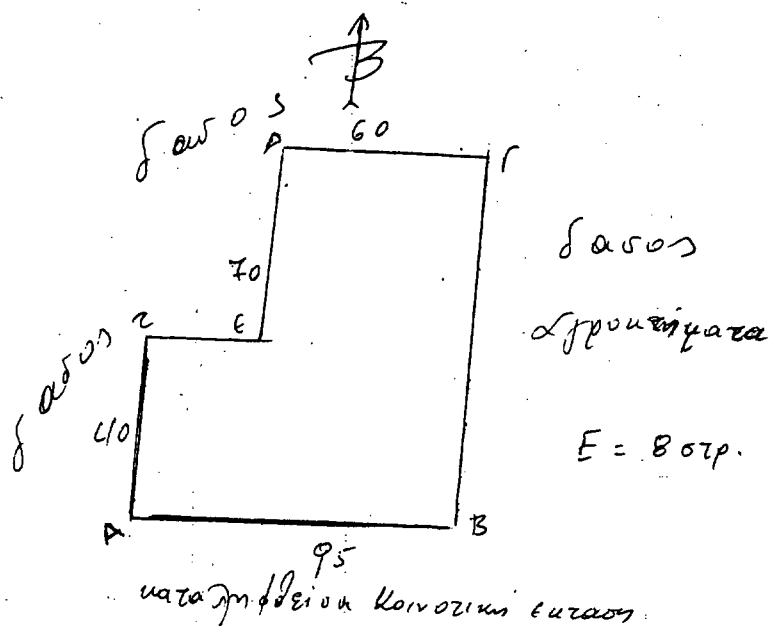 Β
δασος
60
Δ
Γ
70
δασος
αγροκτήματα
Ζ
Ε
δασος
40
Ε = 8 στρ.
Α
Β
95
καταληφθείσα Κοινοτική έκταση